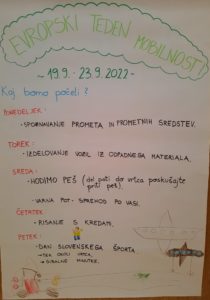 EVROPSKI TEDEN MOBILNOSTI
~ 19.9. - 23.9.2022 -
Kaj bomo počeli?
PONEDELJEK:
- SPOZNAVANJE PROMETA IN PROMETNIH SREDSTEV.
TOREK:
- IZDELOVANJE VOZIL IZ ODPADNEGA MATERIALA.
SREDA:
- HODIMO PEŠ (del poti do vrtca poskušajte
priti peš).
- VARNA POT - SPREHOD PO VASI.
ČETRTEK
- RISANJE S KREDAMI.
PETEK:
- DAN SLOVENSKEGA ŠPORTA
→ TEK OKOLI VRTCA,
→ GIBALNE MINUTKE.